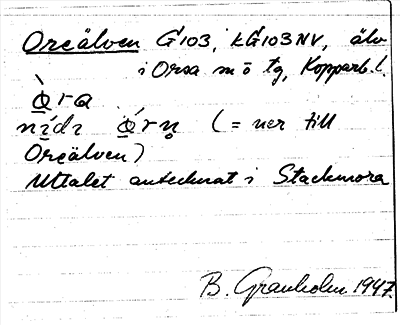 Oreälven G103, kG103NV, älv
i Orsa m ö tg, Kopparb.l.
Ø̀ra
nídɩ Ǿrn̥ (= ner till
Oreälven)
Uttalet antecknat i Stackmora
B. Granholm 1947.